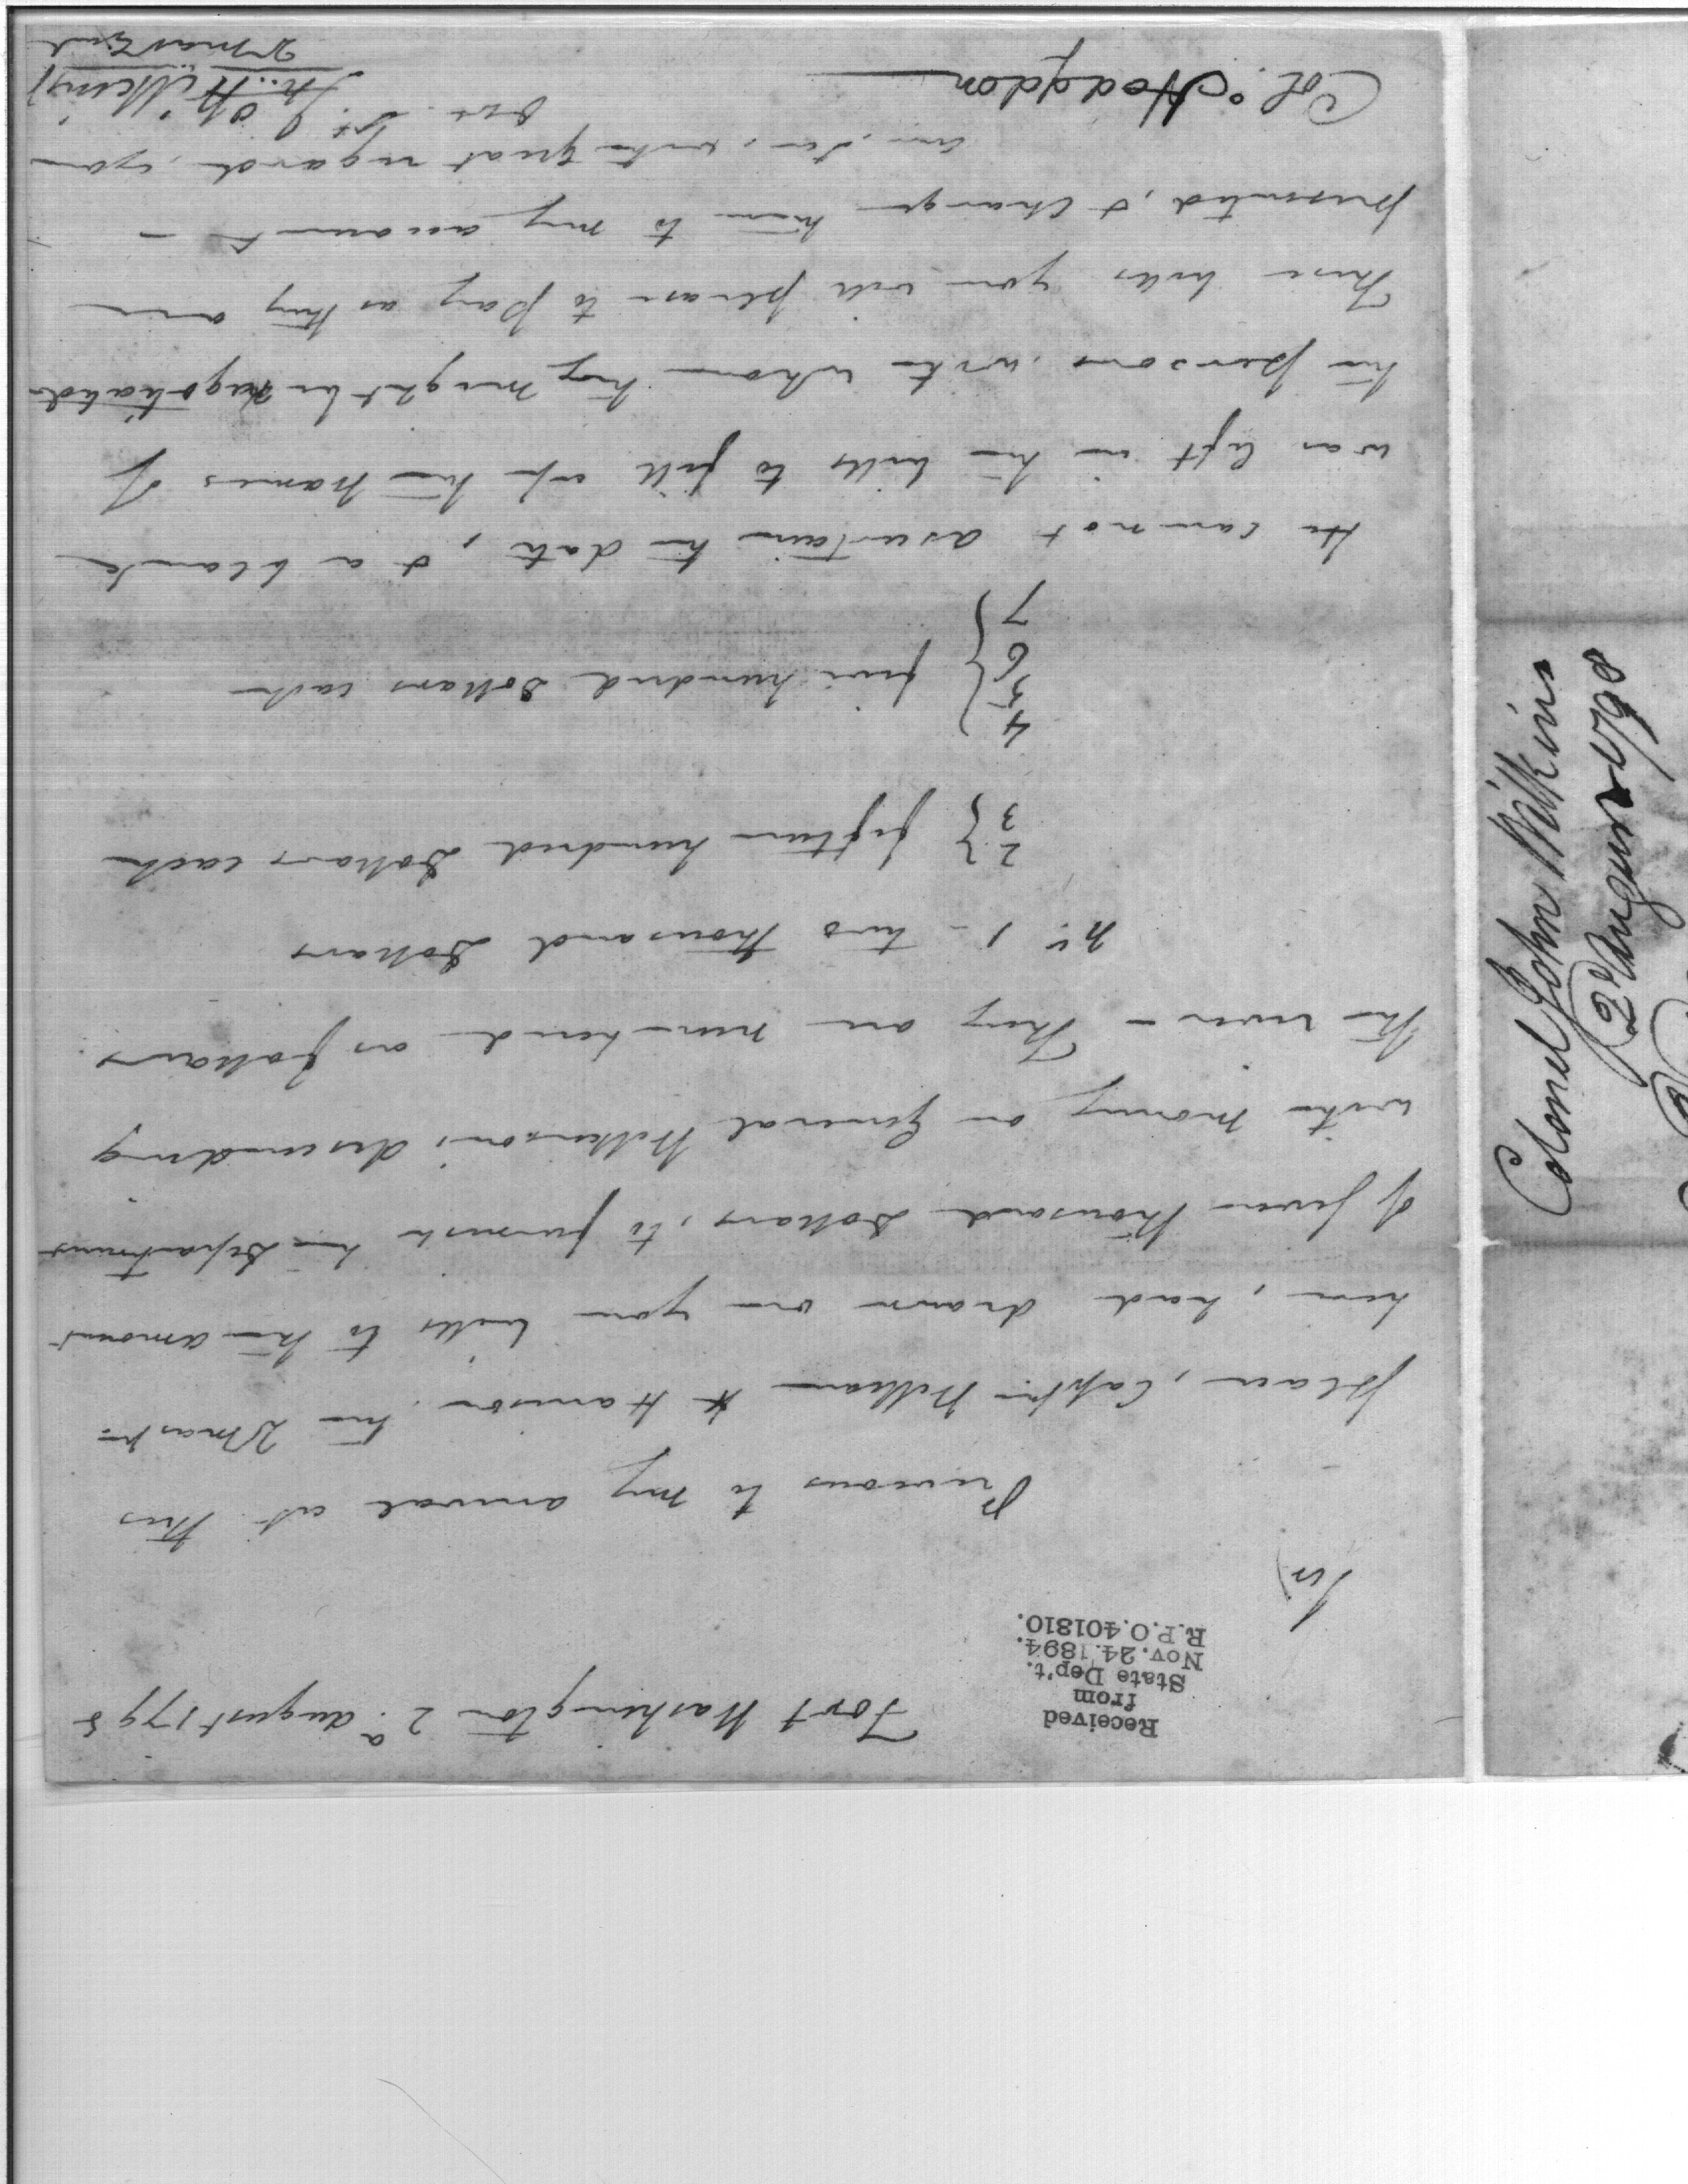 Fort Washington 2d August 1798
Received
from
State Dep't.
Nov. 24. 1894.
R.P.O. 401810.
Sir)
Previous to my arrival at this
place, Captn William H Harrison, the QMastr
here, had drawn on you bills to the amount
of seven thousand Dollars, to furnish the Department
with money on General Wilkinsons descending
the river - They are numbered as follows
No. 1 - two thousand Dollars
2 }
3 } fifteen hundred Dollars each
4 }
5 }
6 } five hundred Dollars each
7 }
He cannot ascertain the date, & a blank
was left in the bills to fill up the names of
the persons with whom they might be negotiated
These bills you will please to pay as they are
presented, & charge them to my account -
am, Sir, with great regard, your
Obt. St.
Jn. Wilkins Jr
QMas Genl
Col: Hodgdon
Colonel John Wilkins
2d August 1798